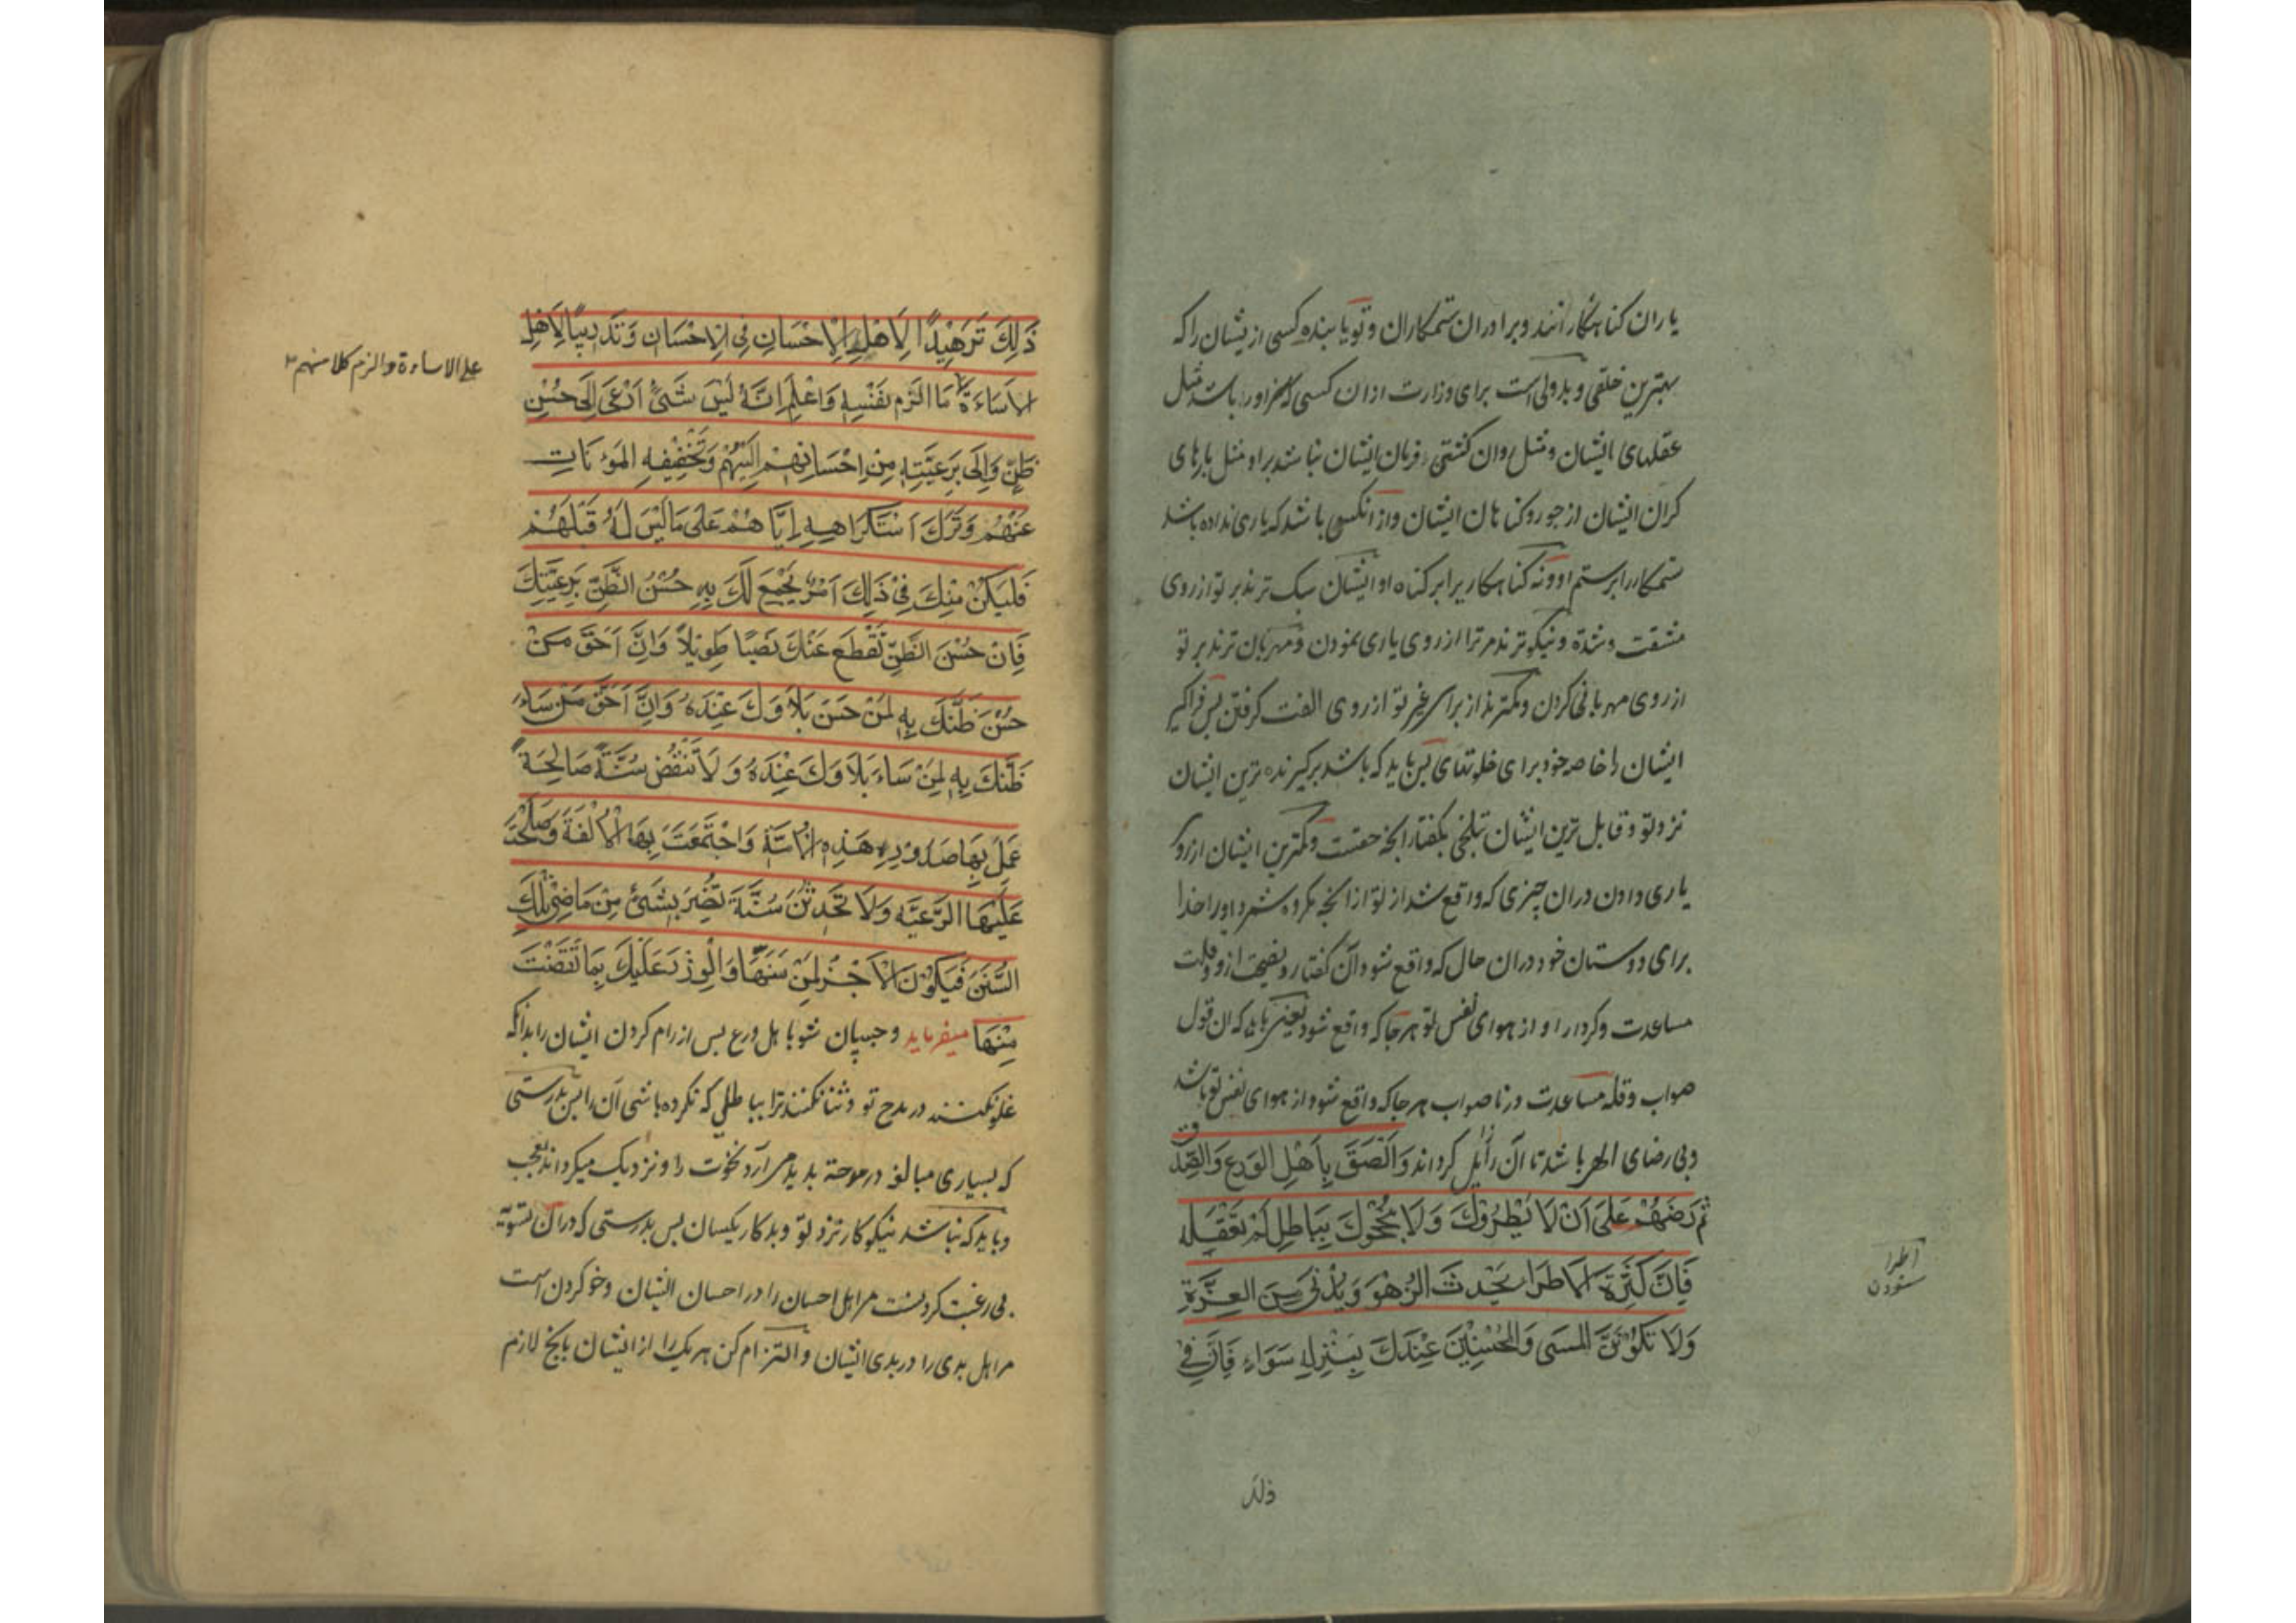 یاران کناهکارانند و برادران ستمکاران و تو یابنده کسی از یشان را که
بهترین خلقی و بدولی است برای وزارت ازان کسی که مراورا باشد مثل
عقلهای ایشان و مثل روان کشتی فرمان ایشان نباشد براو مثل بارهای
کران ایشان از جور و کناهان ایشان و از انکسی باشد که یاری نداده باشد
ستمکار را بر ستم او و نه کناهکار را بر کناه او ایشان سبک ترند بر تو از روی
مشقت و شدة و نیکوترند مر ترا از روی یاری نمودن و مهربان ترند بر تو
از روی مهربانی کردن و کمترند از برای غیر تو از روی الفت کرفتن پس فراکیر
ایشان را خاصه خود برای خلوتهای پس باید که باشد برکیرنده ترین ایشان
نزد تو و قابل ترین ایشان بتلخی بکفتار انچه حقست و کمترین ایشان از رو
یاری دادن دران چیزی که واقع شد از تو از انچه مکروه شمرد اورا خدا
برای دوستان خود دران حال که واقع شود آن کفتار و نصیحت ازو و قلت
مساعدت و کردار او از هوای نفس تو هر جا که واقع شود یعنی باید که ان قول
صواب و قله مساعدت در ناصواب هر جا که واقع شود از هوای نفس تو باشد
و بی رضای الهی باشد تا آن زایل کرداند وَالْصَقْ بِاَهْلِ الوَرَعِ وَالصِّدْق
ثُمَّ رَضْهُمْ عَلَى اَنْ لَا يُطْرُوْكَ وَلَا يَبْجَحُوْكَ بِبَاطِلٍ لَمْ تَفْعَلْهُ
فَاِنَّ كَثْرَةَ الْاِطْرَاءِ تُحْدِثُ الزَّهْوَ وَيُدْنِى مِنَ العِزَّةِ
وَلَا تَكُوْنَنَّ المُسِى وَالمُحْسِنِيْنَ عِنْدَكَ بِمَنْزِلَةٍ سَوَاءٍ فَاِنَّ فِىْ
اطرا
ستودن
ذلک
ذَلِكَ تَزْهِيْدًا لِاَهْلِ الْاِحْسَانِ فِى الْاِحْسَانِ وَتَدْرِيْبًا لِاَهْلِ
الاسَاءَةِ مَا اَلْزَمَ نَفْسَهُ وَاعْلَمْ اَنَّهُ لَيْسَ شَىْءٌ اَدْعَى اِلَى حُسْنِ
ظَنِّ وَالِى بِرَعِيَّتِهِ مِنْ اِحْسَانِهِمْ اِلَيْهِمْ وَتَخْفِيْفِهِ المَؤُنَاتِ
عَنْهُمْ وَتَرْكَ اسْتِكْرَاهِهِ اِيَّاهُمْ عَلَى مَا لَيْسَ لَهُ قِبَلَهُمْ
فَلْيَكُنْ مِنْكَ فِىْ ذَلِكَ اَمْرٌ يَجْمَعُ لَكَ بِهِ حُسْنُ الظَّنِّ بِرَعِيَّتِكَ
فَاِنَّ حُسْنَ الظَّنِّ تَقْطَعُ عَنْكَ نَصَبًا طَوِيْلاً وَاِنَّ اَحَقَّ مَنْ
حَسُنَ ظَنُّكَ بِهِ لَمَنْ حَسُنَ بَلَاؤُكَ عِنْدَهُ وَاِنَّ اَحَقَّ مَنْ سَاءَ
ظَنُّكَ بِهِ لَمَنْ سَاءَ بَلَاؤُكَ عِنْدَهُ وَلَا تَنْقُضْ سُنَّةً صَالِحَةً
عَمِلَ بِهَا صُدُوْرُ هَذِهِ الْاُمَّةِ وَاجْتَمَعَتْ بِهَا الْاُلْفَةُ وَصَلَحَتْ
عَلَيْهَا الرَّعِيَّةُ وَلَا تُحْدِثَنَّ سُنَّةً تَضُرُّ بِشَىْءٍ مِنْ مَاضِى تِلْكَ
السُّنَنِ فَيَكُوْنَ الْاَجْرُ لِمَنْ سَنَّهَا وَالْوِزْرُ عَلَيْكَ بِمَا نَقَضْتَ
مِنْهَا میفرماید و چسپان شو باهل ورع پس از رام کردن ایشان را بدانکه
غلو نکنند در مدح تو و ثنا نکنند ترا بباطلی که نکرده باشی آن را پس بدرستی
که بسیاری مبالغه در مدحة پدید می آرد نخوت را و نزدیک میکرداند بعجب
و باید که نباشد نیکوکار نزد تو و بدکار یکسان پس بدرستی که دران تسویه
بی رغبت کردنست مر اهل احسان را در احسان ایشان و خو کردن است
مر اهل بدی را در بدی ایشان و التزام کن هر یک را از ایشان بانچه لازم
علی الاساءة والزم کلا منهم